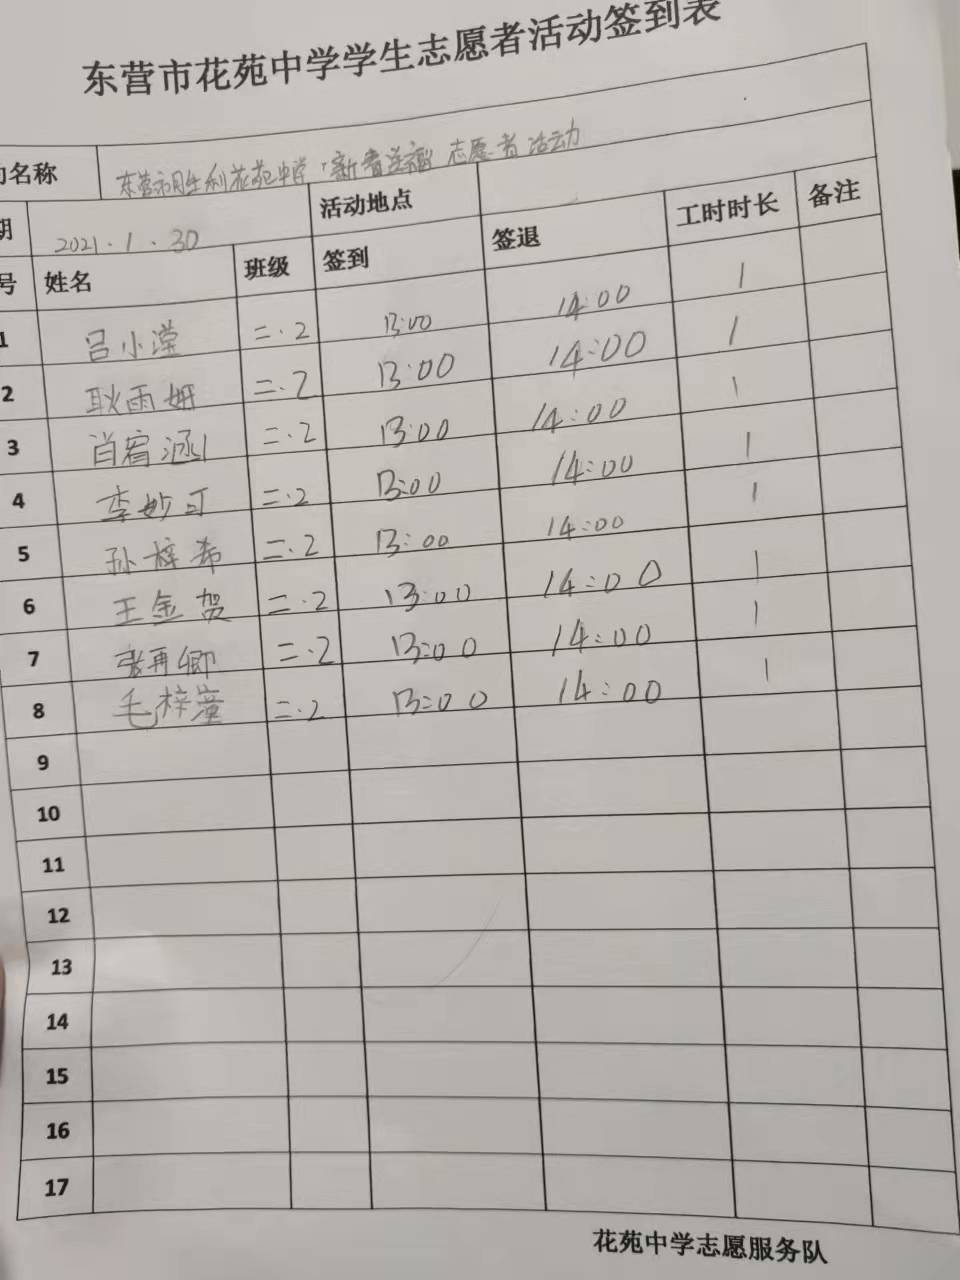 东营市花苑中学学生志愿者活动签到表
名称 东营市胜利花苑中学“新春送福”志愿者活动
期 2021.1.30 活动地点
号 姓名 班级 签到 签退 工时时长 备注
1 吕小滢 二.2 13:00 14:00 1
2 耿雨妍 二.2 13:00 14:00 1
3 肖宥涵 二.2 13:00 14:00 1
4 李妙可 二.2 13:00 14:00 1
5 孙梓希 二.2 13:00 14:00 1
6 王金贺 二.2 13:00 14:00 1
7 张再卿 二.2 13:00 14:00 1
8 毛梓潼 二.2 13:00 14:00 1
9
10
11
12
13
14
15
16
17
花苑中学志愿服务队